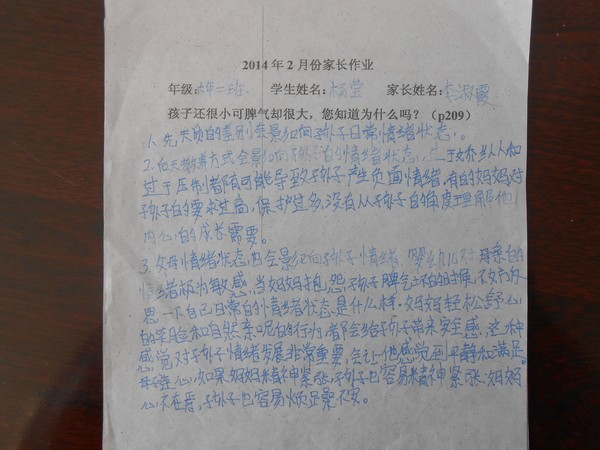 2014年2月份家长作业
年级: 二班 学生姓名: 杨莹 家长姓名: 李淑霞
孩子还很小可脾气却很大，您知道为什么吗？（p209）
1. 先天气质的差别会影响孩子日常情绪状态。
2. 后天教养方式会影响孩子的情绪状态,
过于压制都有可能导致孩子产生负面情绪,有的妈妈对
孩子的要求过高,保护过多,没有从孩子的角度理解他们
内心的成长需要。
3. 父母情绪状态,也会影响孩子情绪,婴幼儿对母亲的
情绪极为敏感,当妈妈抱怨孩子脾气坏的时候,不妨反
思一下自己日常的情绪状态是什么样.妈妈轻松舒心
的笑脸和自然亲昵的行为,都会给孩子带来安全感,这种
感觉对孩子情绪发展非常重要,会让他感觉到平静和满足。
心,如果妈妈精神紧张,孩子也容易精神紧张、妈妈
心不在焉,孩子也容易烦躁不安。